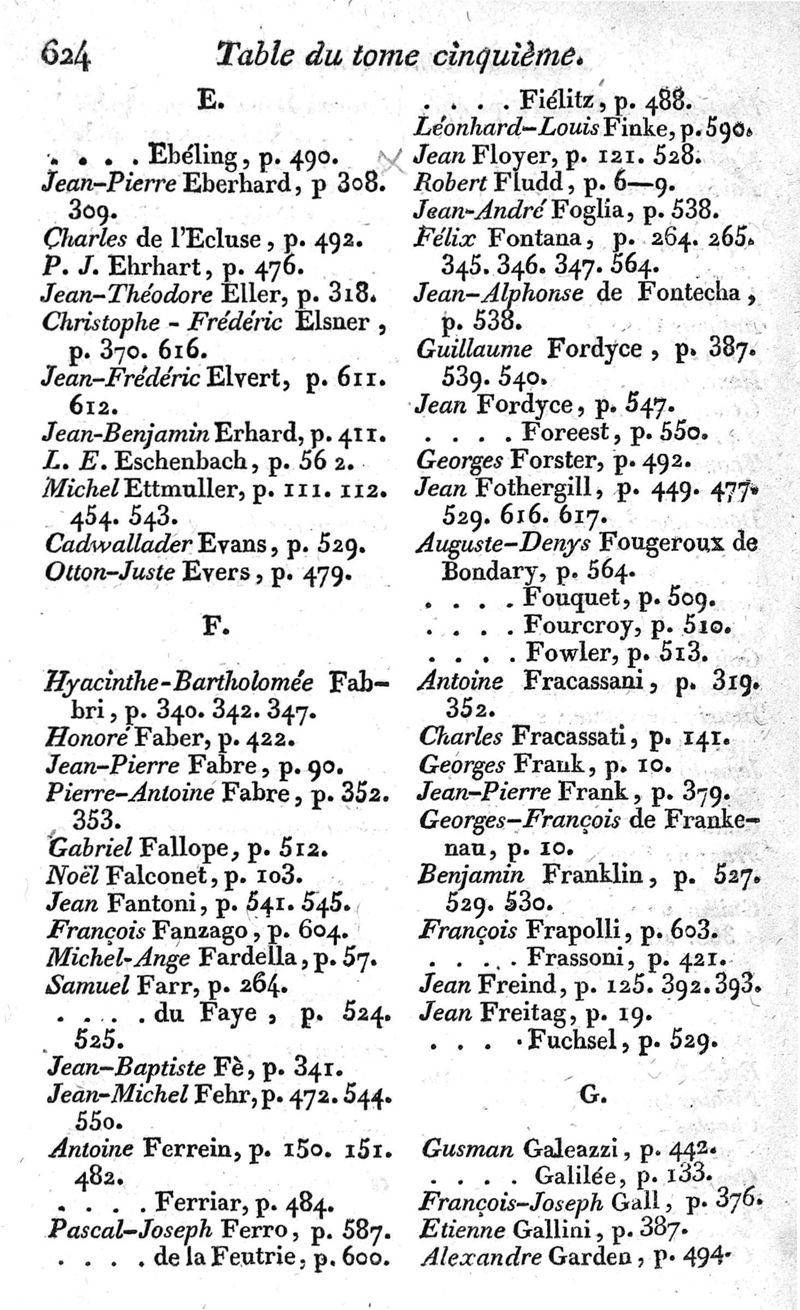 624 Table du tome cinquième.
E.
. . . . Ebéling, p. 490.
Jean-Pierre Eberhard, p 308.
309.
Charles de l'Ecluse, p. 492.
P. J. Ehrhart, p. 476.
Jean-Théodore Eller, p. 318.
Christophe - Frédéric Elsner,
p. 370. 616.
Jean-Frédéric Elvert, p. 611.
612.
Jean-Benjamin Erhard, p. 411.
L. E. Eschenbach, p. 56 2.
Michel Ettmuller, p. 111. 112.
454. 543.
Cadwallader Evans, p. 529.
Otton-Juste Evers, p. 479.
F.
Hyacinthe-Bartholomée Fab-
bri, p. 340. 342. 347.
Honoré Faber, p. 422.
Jean-Pierre Fabre, p. 90.
Pierre-Antoine Fabre, p. 352.
353.
Gabriel Fallope, p. 512.
Noël Falconet, p. 103.
Jean Fantoni, p. 541. 545.
François Fanzago, p. 604.
Michel-Ange Fardella, p. 57.
Samuel Farr, p. 264.
. . . . du Faye, p. 524.
525.
Jean-Baptiste Fè, p. 341.
Jean-Michel Fehr, p. 472. 544.
550.
Antoine Ferrein, p. 150. 151.
482.
. . . . Ferriar, p. 484.
Pascal-Joseph Ferro, p. 587.
. . . . de la Feutrie, p. 600.
. . . . Fiélitz, p. 488.
Léonhard-Louis Finke, p. 590.
Jean Floyer, p. 121. 528.
Robert Fludd, p. 6—9.
Jean-André Foglia, p. 538.
Félix Fontana, p. 264. 265.
345. 346. 347. 564.
Jean-Alphonse de Fontecha,
p. 538.
Guillaume Fordyce, p. 387.
539. 540.
Jean Fordyce, p. 547.
. . . . Foreest, p. 550.
Georges Forster, p. 492.
Jean Fothergill, p. 449. 477.
529. 616. 617.
Auguste-Denys Fougeroux de
Bondary, p. 564.
. . . . Fouquet, p. 509.
. . . . Fourcroy, p. 510.
. . . . Fowler, p. 513.
Antoine Fracassani, p. 319.
352.
Charles Fracassati, p. 141.
Georges Frank, p. 10.
Jean-Pierre Frank, p. 379.
Georges-François de Franke-
nau, p. 10.
Benjamin Franklin, p. 527.
529. 530.
François Frapolli, p. 603.
. . . . Frassoni, p. 421.
Jean Freind, p. 125. 392. 393.
Jean Freitag, p. 19.
. . . . Fuchsel, p. 529.
G.
Gusman Galeazzi, p. 442.
. . . . Galilée, p. 133.
François-Joseph Gall, p. 376.
Etienne Gallini, p. 387.
Alexandre Garden, p. 494.